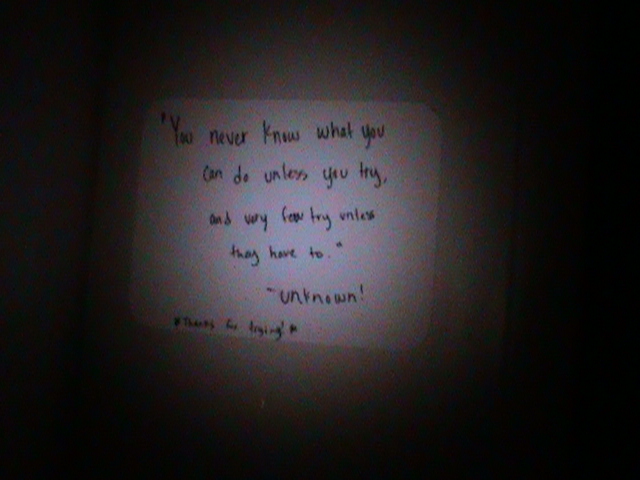 "You never know what you
can do unless you try,
and very few try unless
they have to."
~unknown!
*Thanks for trying!*